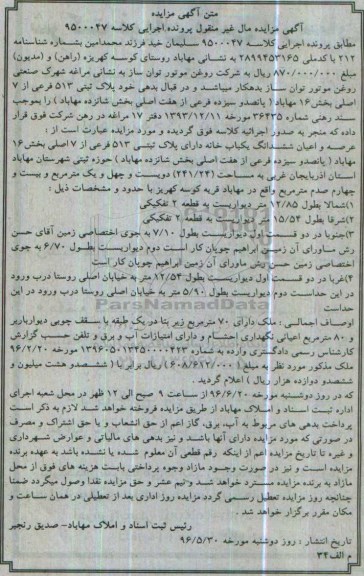 متن آگهی مزایده
آگهی مزایده مال غیر منقول پرونده اجرایی کلاسه ۹۵۰۰۰۴۷
مطابق پرونده اجرایی کلاسه ۹۵۰۰۰۴۷ سلیمان خیذ فرزند محمدامین بشماره شناسنامه
۲۱۲ با کدملی ۲۸۹۹۴۵۳۱۶۵ به نشانی مهاباد روستای کوسه کهریزه (راهن) و (مدیون)
مبلغ ۸۷۰/۰۰۰/۰۰۰ ریال به شرکت روغن موتور توان ساز به نشانی مراغه شهرک صنعتی
روغن موتور توان ساز بدهکار میباشد و در قبال بدهی خود پلاک ثبتی ۵۱۳ فرعی از ۷
اصلی بخش۱۶ مهاباد( پانصدو سیزده فرعی از هفت اصلی بخش شانزده مهاباد ) را بموجب
سند رهنی شماره ۳۶۴۳۵ مورخه ۱۳۹۳/۱۲/۱۱ دفتر ۱۷ مراغه در رهن شرکت فوق قرار
داده که منجر به صدور اجرائیه کلاسه فوق گردیده و مورد مزایده عبارت است از :
عرصه و اعیان ششدانگ یکباب خانه دارای پلاک ثبتی ۵۱۳ فرعی از ۷ اصلی بخش ۱۶
مهاباد ( پانصدو سیزده فرعی از هفت اصلی بخش شانزده مهاباد ) حوزه ثبتی شهرستان مهاباد
استان اذربایجان غربی به مساحت (۲۴۱/۲۴) دویست و چهل و یک مترمربع و بیست و
چهارم صدم مترمربع واقع در مهاباد قریه کوسه کهریز با حدود و مشخصات ذیل :
۱)شمالا بطول ۱۲/۸۵ متر دیواریست به قطعه ۲ تفکیکی
۲)شرقا بطول ۱۵/۵۴ متر دیواریست به قطعه ۲ تفکیکی
۳)جنوبا در دو قسمت اول دیواریست بطول ۷/۱۰ به جوی اختصاصی زمین آقای حسن
رش ماورای آن زمین ابراهیم چوپان کار است دوم دیواریست بطول ۶/۷۰ به جوی
اختصاصی زمین حسن رش ماورای آن زمین ابراهیم چوپان کار است
۴)غربا در دو قسمت اول دیواریست بطول ۱۲/۵۴ متر به خیابان اصلی روستا درب ورود
در این حداست دوم دیواریست بطول ۵/۹۰ متر به خیابان اصلی روستا درب ورود در این
حداست
اوصاف اجمالی : ملک دارای ۷۰ مترمربع زیر بنا در یک طبقه با سقف چوبی دیوارباربر
و ۸۰ مترمربع اعیانی نگهداری احتشام و دارای امتیازات آب و برق و تلفن حسب گزارش
کارشناس رسمی دادگستری وارده به شماره ۱۳۹۶۰۵۰۱۳۴۵۰۰۰۰۴۲۳ مورخه ۹۶/۲/۲۰
ملک مذکور مورد نظر به مبلغ ( ۶۰۸/۶۱۲/۰۰۰ ) ریال برابر با ( ششصدو هشت میلیون و
ششصدو دوازده هزار ریال ) اعلام گردید .
که در روز دوشنبه مورخه ۹۶/۶/۲۰ از ساعت ۹ صبح الی ۱۲ ظهر در محل شعبه اجرای
اداره ثبت اسناد و املاک مهاباد از طریق مزایده فروخته خواهد شد لازم به ذکر است
پرداخت بدهی های مربوط به آب، برق، گاز اعم از حق انشعاب و یا حق اشتراک و مصرف
در صورتی که مورد مزایده دارای آنها باشد و نیز بدهی های مالیاتی و عوارض شهرداری
و غیره تا تاریخ مزایده اعم از اینکه رقم قطعی آن معلوم شده یا نشده باشد به عهده برنده
مزایده است و نیز در صورت وجود مازاد وجوه پرداختی بابت هزینه های فوق از محل
مازاد به برنده مزایده مسترد خواهد شد ونیم عشر و حق مزایده نقدا وصول میگردد ضمنا
چنانچه روز مزایده تعطیل رسمی گردد مزایده روز اداری بعد از تعطیلی در همان ساعت و
مکان مقرر برگزار خواهد شد .
رئیس ثبت اسناد و املاک مهاباد- صدیق رنجبر
تاریخ انتشار : روز دوشنبه مورخه ۹۶/۵/۳۰
م الف۳۴
ParsNamadData